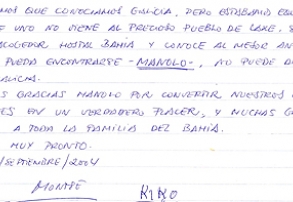 MOS QUE CONOCIAMOS GALICIA, PERO ESTABAMOS EQU
E UNO NO VIENE AL PRECIOSO PUEBLO DE LAXE, S
ACOGEDOR HOSTAL BAHIA Y CONOCE AL MEJOR AN
PUEDA ENCONTRARSE -MANOLO-, NO PUEDE D
ALICIA.
S GRACIAS MANOLO POR CONVERTIR NUESTROS
ES EN UN VERDADERO PLACER, Y MUCHAS G
A TODA LA FAMILIA DEL BAHIA.
MUY PRONTO.
/SEPTIEMBRE/2004
MONTSE KIKO